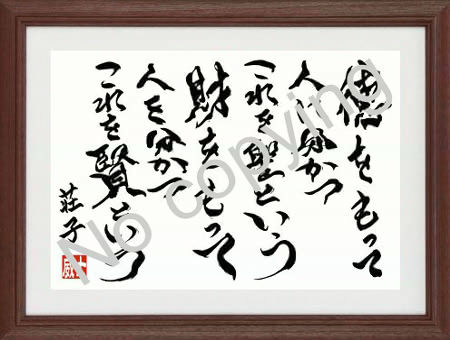 徳をもって
人に分かつ
これを聖という
財をもって
人に分かつ
これを賢という
荘子
No copying